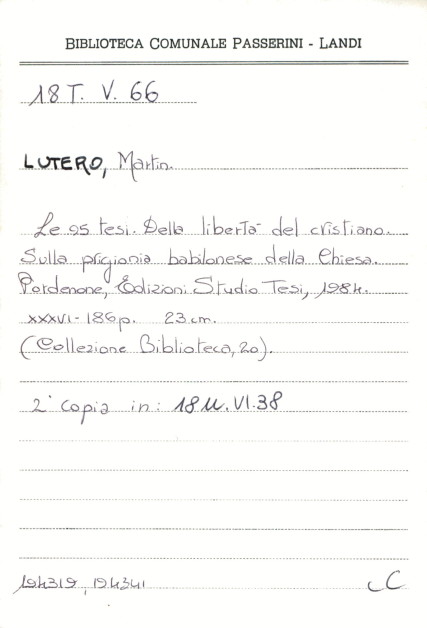 BIBLIOTECA COMUNALE PASSERINI - LANDI
18 T. V. 66
LUTERO, Martin.
Le 95 tesi. Della libertà del cristiano.
Sulla prigionia babilonese della Chiesa.
Pordenone, Edizioni Studio Tesi, 1984.
XXXVI-186 p. 23 cm.
(Collezione Biblioteca, 20).
2ª copia in: 18 U. VI. 38
194319, 194341 C